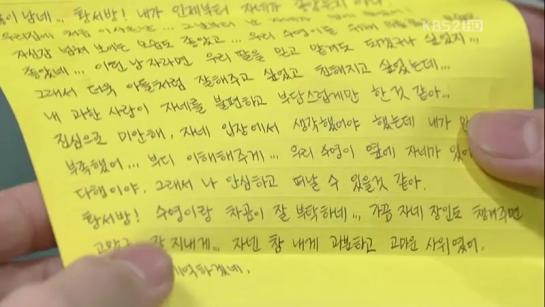 KBS2
남네... 황서방! 내가 언제부터 자네가 좋았는지 아나
자신감 넘쳐 보이는 모습도 좋았고... 우리 수영이를
좋았네... 이런 남자라면 우리 딸을 믿고 맡겨도 되겠구나 싶었지...
그래서 더욱 아들처럼 잘해주고 싶었고 친해지고 싶었는데...
내 과한 사랑이 자네를 불편하고 부담스럽게만 한 것 같아...
진심으로 미안해, 자네 입장에서 생각했어야 했는데 내가
부족했어... 부디 이해해주게... 우리 수영이 옆에 자네가 있어
다행이야. 그래서 나 안심하고 떠날 수 있을것 같아.
황서방! 수영이랑 차곰이 잘 부탁하네... 가끔 자네 장인도 챙겨주면
고맙고 잘 지내게... 자넨 참 내게 과분하고 고마운 사위였어.
기억하겠네.